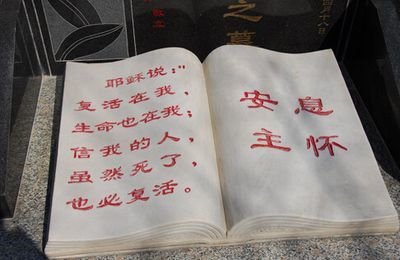 之墓
敬立
耶稣说："
复活在我，
生命也在我；
信我的人，
虽然死了，
也必复活。
安息
主怀